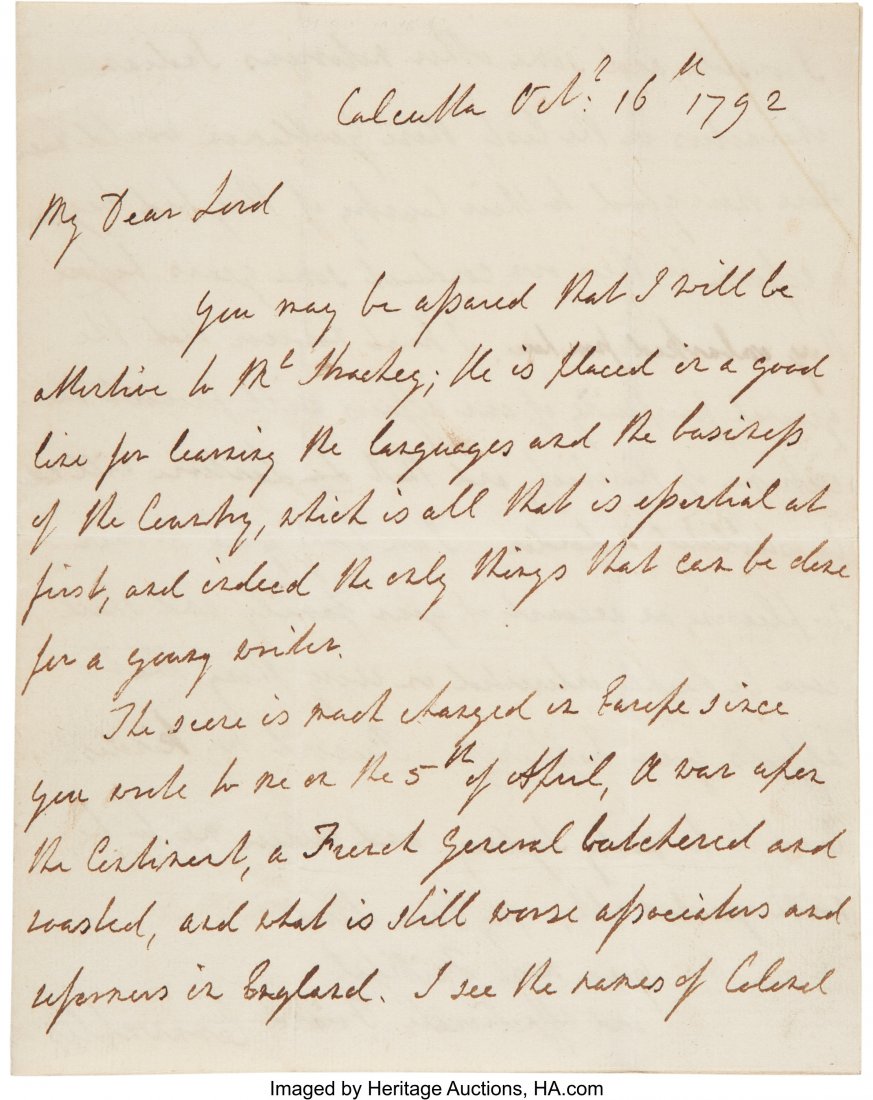 Calcutta Oct.r 16th 1792
My Dear Lord
You may be assured that I will be
attentive to Mr Strachey; He is placed in a good
line for learning the languages and the business
of the Country, which is all that is essential at
first, and indeed the only things that can be done
for a young writer.
The scene is much changed in Europe since
you wrote to me on the 5th of April, A war upon
the Continent, a French General butchered and
roasted, and what is still worse associators and
reformers in England. I see the names of Colonel
Imaged by Heritage Auctions, HA.com